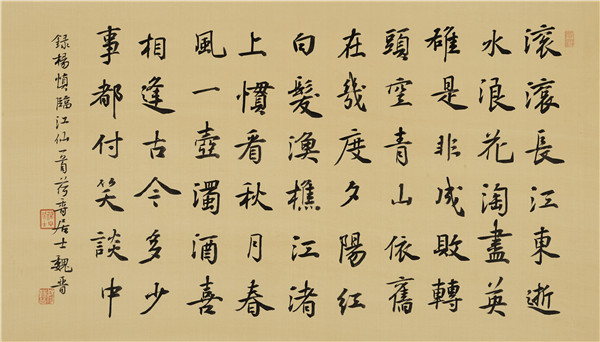 滚滚長江東逝
水浪花淘盡英
雄是非成敗轉
頭空青山依舊
在幾度夕陽紅
白髮漁樵江渚
上慣看秋月春
風一壺濁酒喜
相逢古今多少
事都付笑談中
録楊慎臨江仙一首荷香居士魏晋